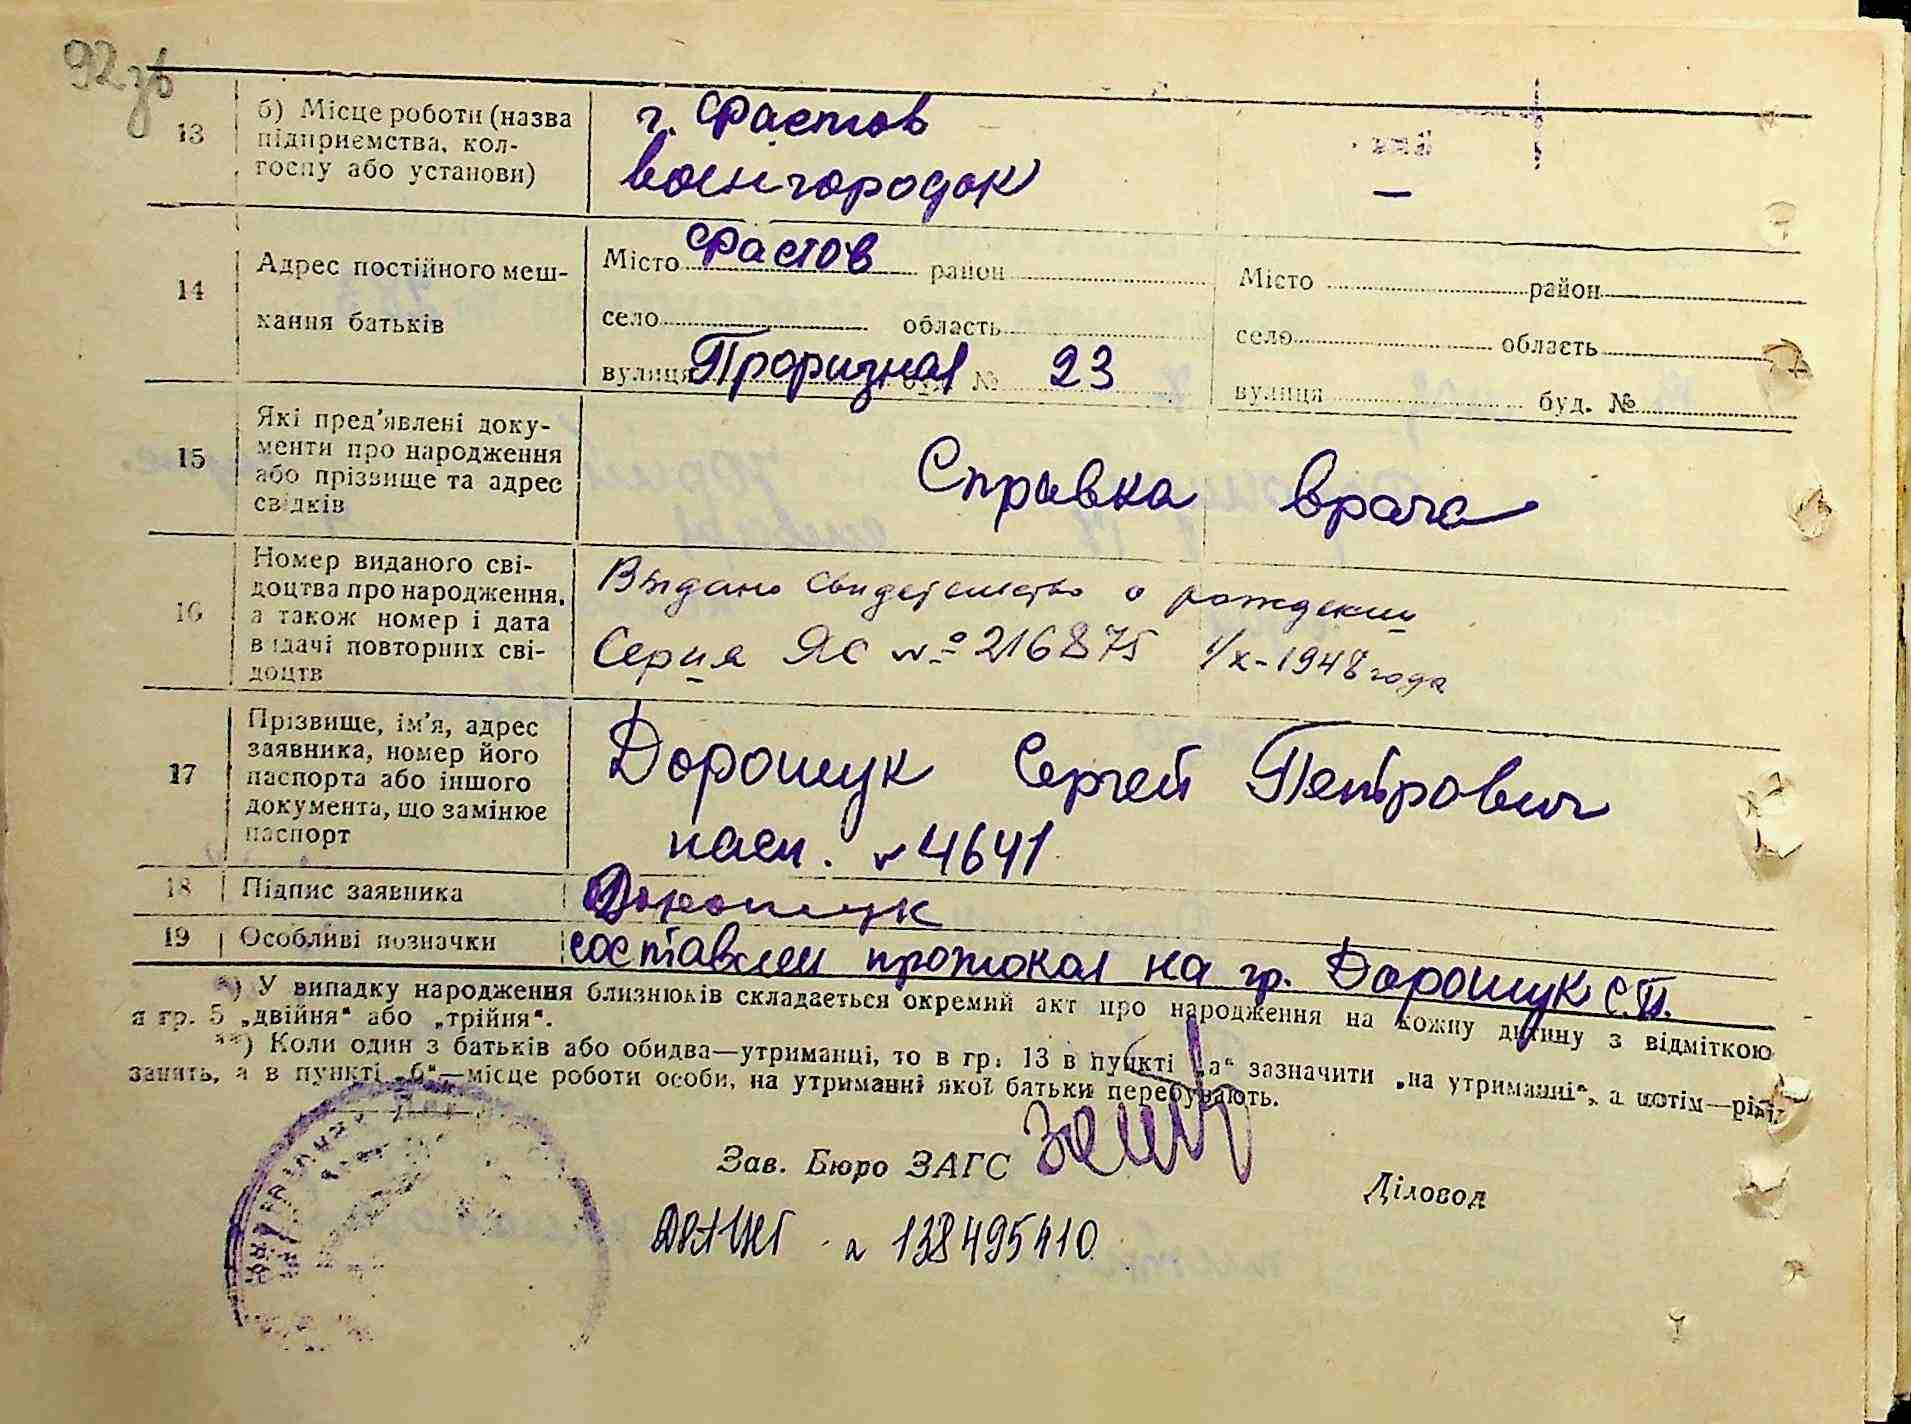 92зв
13
б) Місце роботи (назва
підприємства, кол-
госпу або установи)
г. Фастов
Воєнгородок
—
14
Адрес постійного меш-
кання батьків
Місто Фастов район
село область
вулиця Проризная № 23
Місто район
село область
вулиця буд. №
15
Які пред'явлені доку-
менти про народження
або прізвище та адрес
свідків
Справка врача
16
Номер виданого сві-
доцтва про народження,
а також номер і дата
видачі повторних сві-
доцтв
Выдано свидетельство о рождении
Серия ЯС № 216875 1/X-1948 года
17
Прізвище, ім'я, адрес
заявника, номер його
паспорта або іншого
документа, що замінює
паспорт
Дорошук Сергей Петрович
пасп. № 4641
18
Підпис заявника
Дорошук
19
Особливі позначки
составлен протокол на гр. Дорошук С.П.
*) У випадку народження близнюків складається окремий акт про народження на кожну дитину з відміткою
в гр. 5 „двійня“ або „трійня“.
**) Коли один з батьків або обидва—утриманці, то в гр. 13 в пункті „а“ зазначити „на утриманні“, а потім—рід
занять, а в пункті „б“—місце роботи особи, на утриманні якої батьки перебувають.
Зав. Бюро ЗАГС
Діловод
138495410